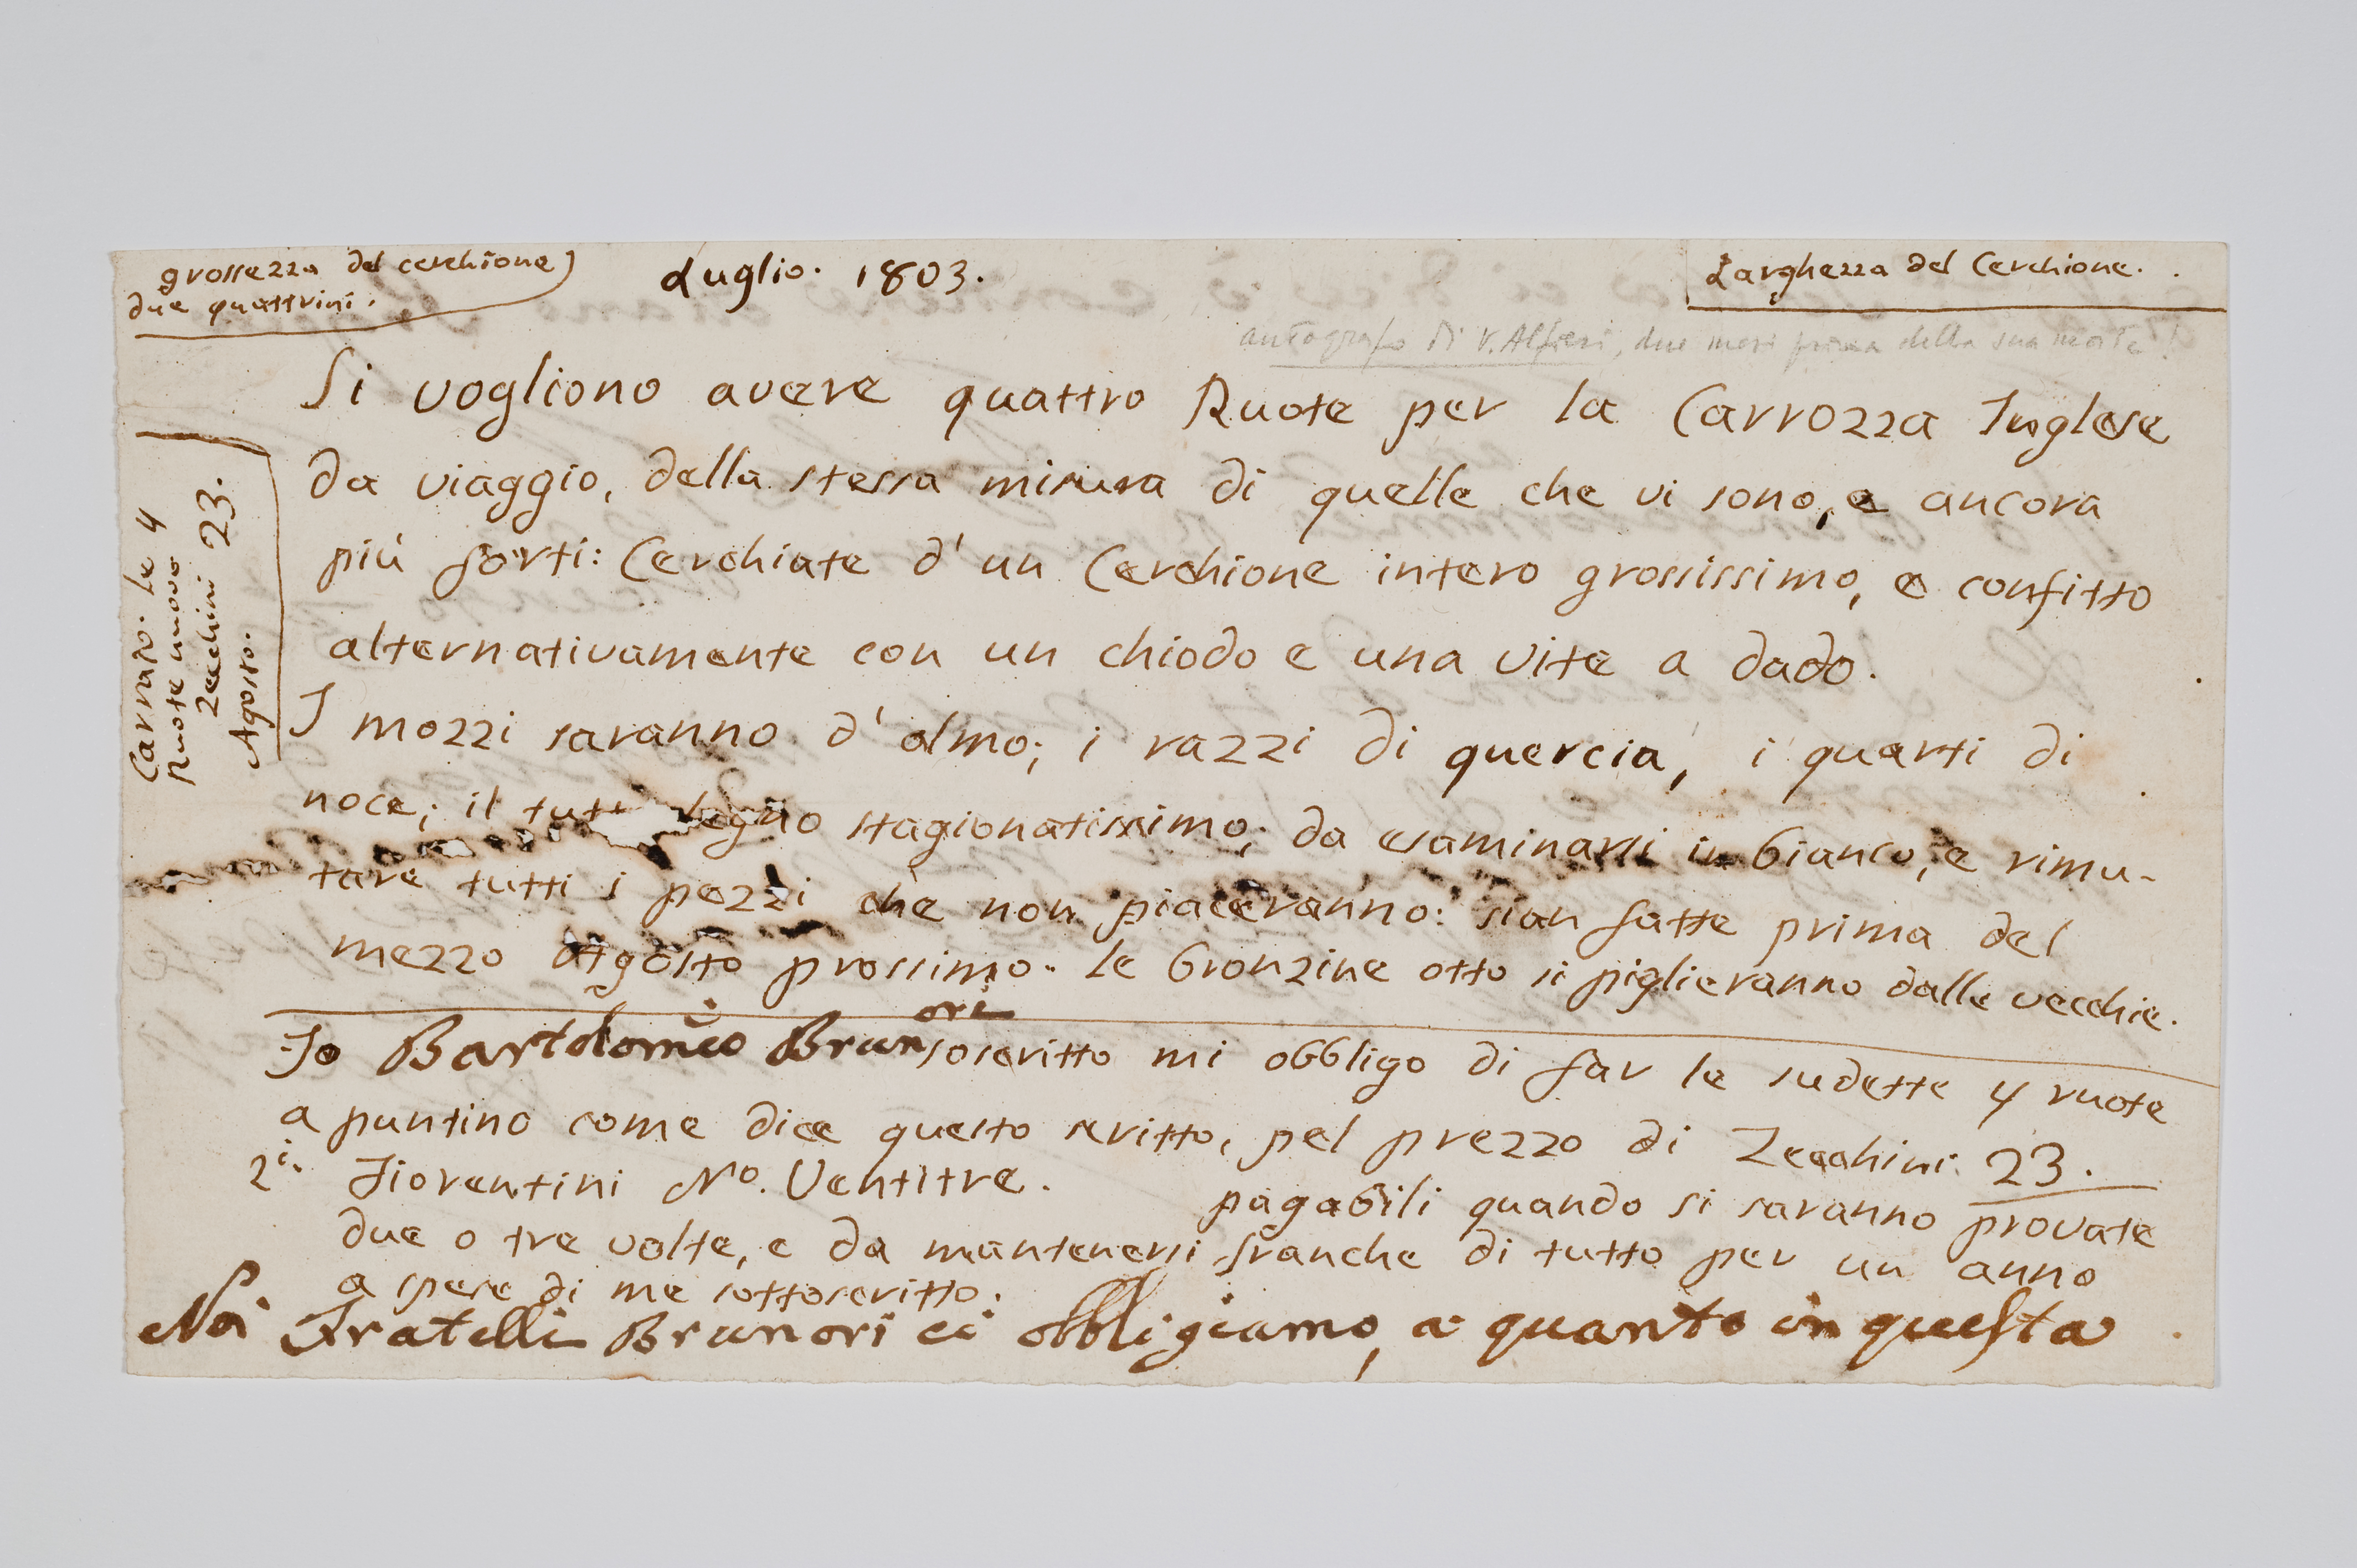 grossezza del cerchione
due quattrini.
Luglio. 1803.
Larghezza del Cerchione.
autografo di V. Alfieri, due mesi prima della sua morte!
Si vogliono avere quattro Ruote per la Carrozza Inglese
da viaggio, della stessa misura di quelle che vi sono, e ancora
più forti: Cerchiate d'un Cerchione intero grossissimo, e confitto
alternativamente con un chiodo e una vite a dado.
I mozzi saranno d'olmo; i razzi di quercia, i quarti di
noce; il tutt legno stagionatissimo; da esaminarsi in bianco, e rimu-
tare tutti i pezzi che non piaceranno: sian fatte prima del
mezzo Agosto prossimo. le bronzine otto si piglieranno dalle vecchie.
Carraio. le 4
Ruote nuove
Zecchini 23.
Agosto.
Io Bartolomeo Brunori soscritto mi obbligo di far le sudette 4 ruote
a puntino come dice questo scritto, pel prezzo di Zecchini 23.
2i. Fiorentini No. Ventitre. pagabili quando si saranno provate
due o tre volte, e da mantenersi franche di tutto per un anno
a spese di me sottoscritto.
Noi Fratelli Brunori ci obbligiamo, a quanto in questa